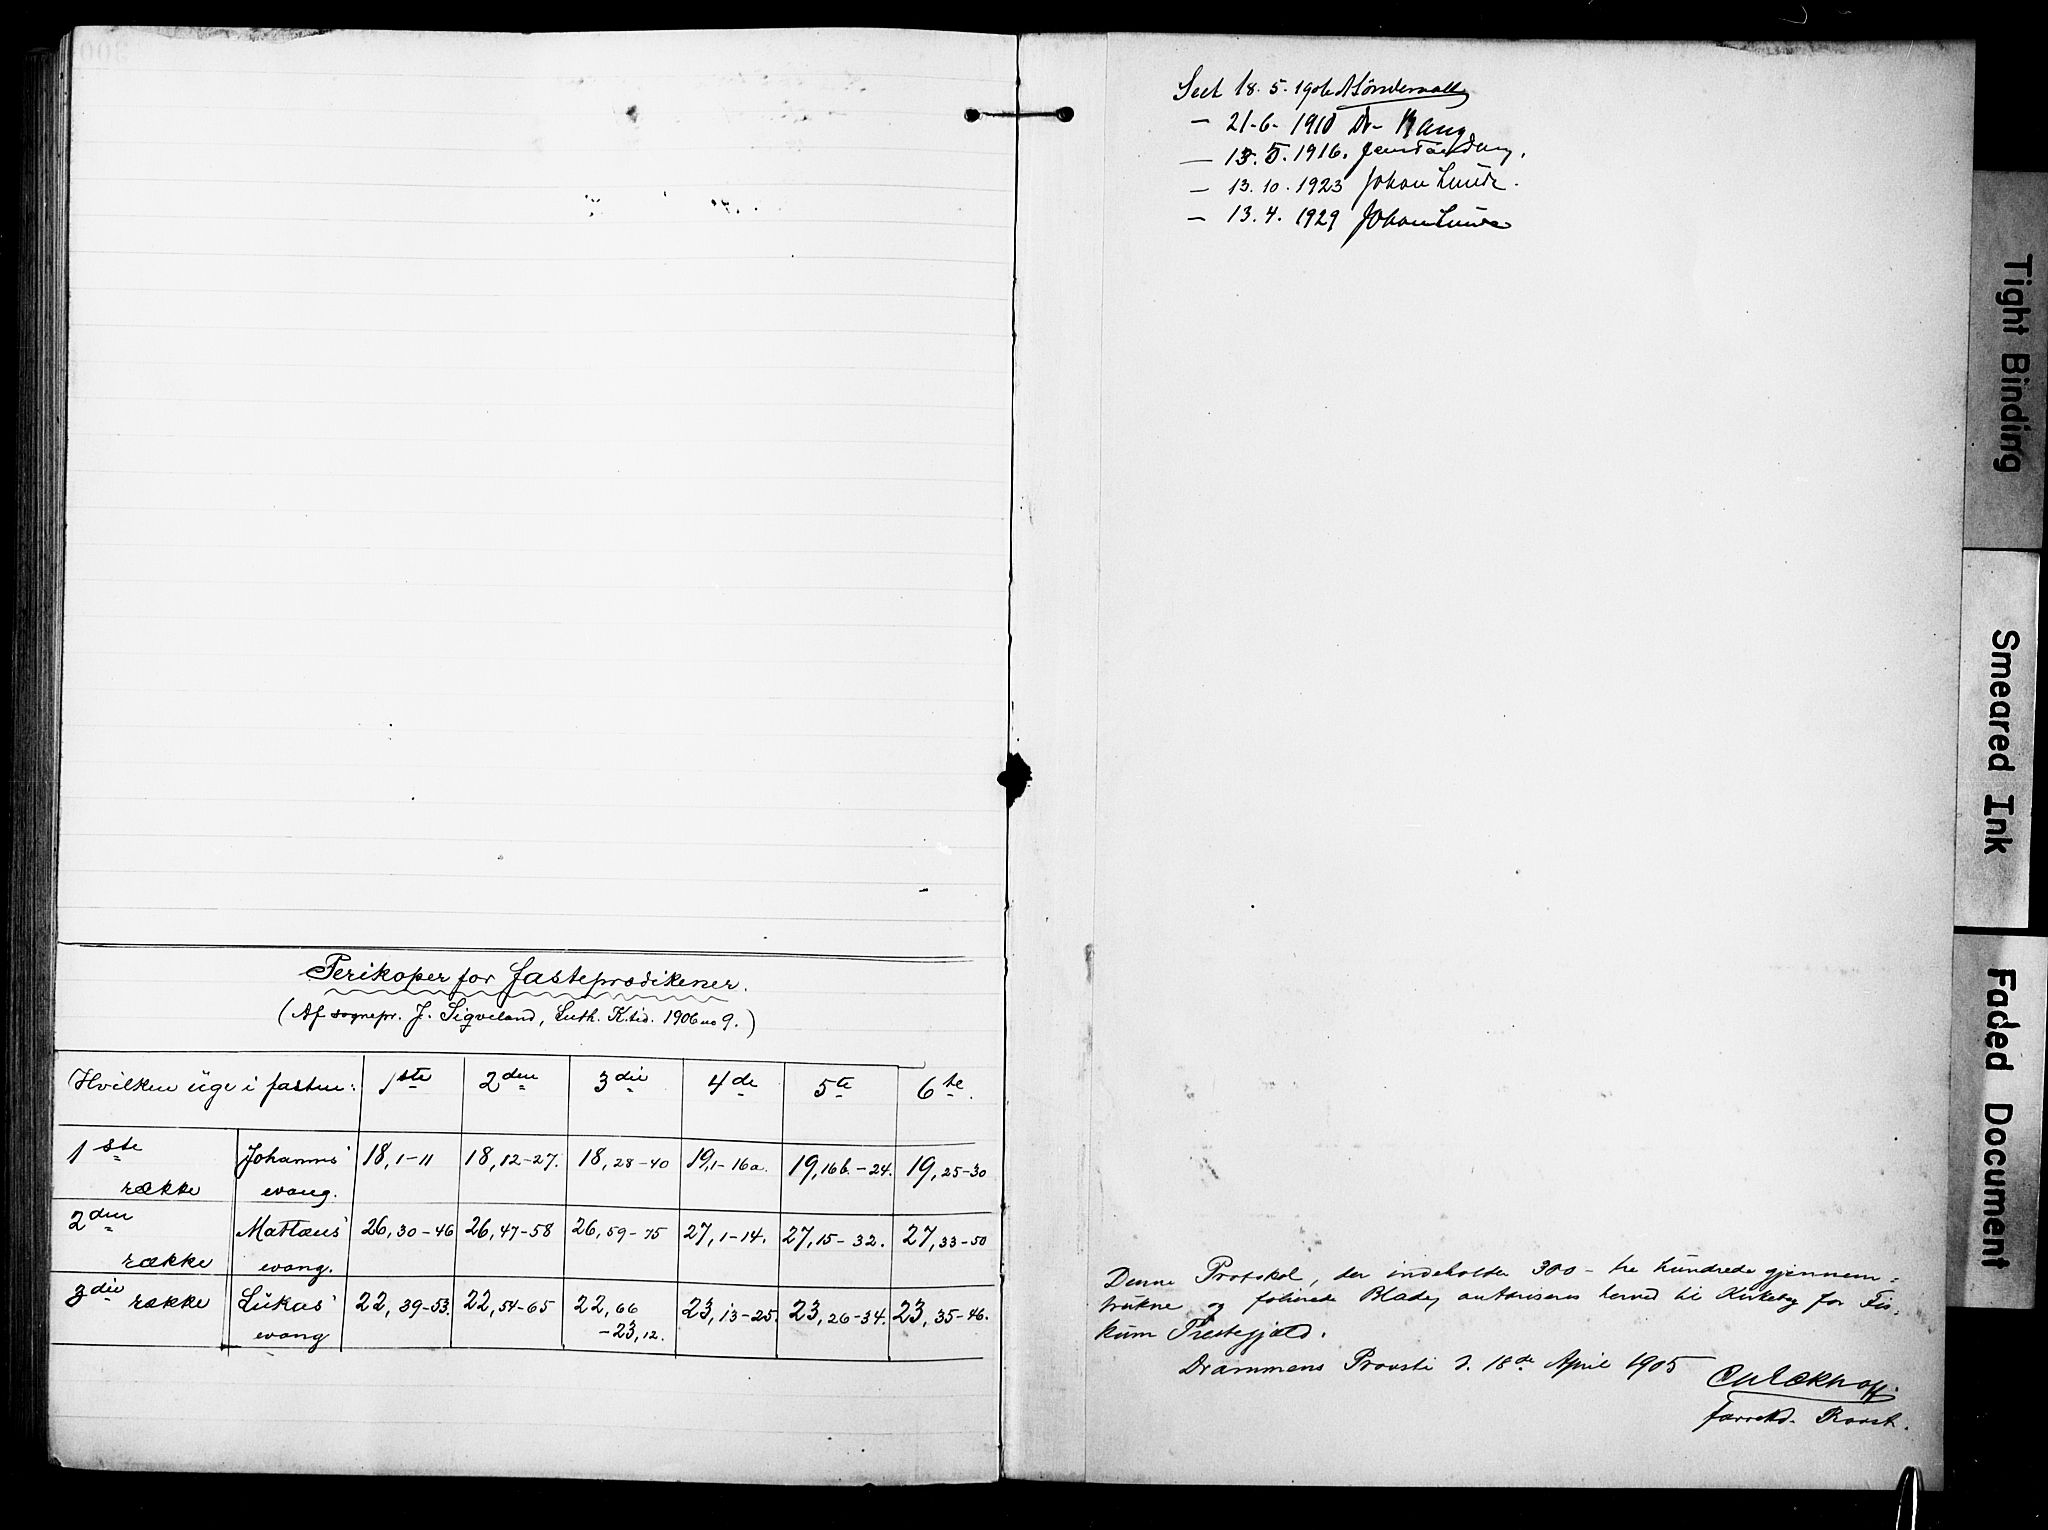 Perikoper for fasteprædikener.
(Af sognepr. J. Sigveland, Luth. K.tid. 1906 no 9.)
Hvilken uge i fasten: 1ste 2den 3die 4de 5te 6te
1ste række Johannes' evang. 18, 1-11 18, 12-27. 18, 28-40 19, 1-16a. 19, 16b.-24. 19, 25-30
2den række Mattæus' evang. 26, 30-46 26, 47-58 26, 59-75 27, 1-14. 27, 15-32. 27, 33-50
3die række Lukas' evang 22, 39-53. 22, 54-65 22, 66 -23, 12. 23, 13-25. 23, 26-34. 23, 35-46.
Seet 18. 5. 1906
- 21-6- 1910 Dr- Bang
- 13. 5. 1916. Jens Tandberg.
- 13. 10. 1923 Johan Lunde.
- 13. 4. 1929 Johan Lunde
Denne Protokol, der indeholder 300 - tre hundrede gjennem-
trukne og folierede Blade, authoriseres herved til Kirkebog for Fis-
kum Prestegjæld.
Drammens Provsti d. 18de April 1905
Provst.
Tight Binding
Smeared Ink
Faded Document